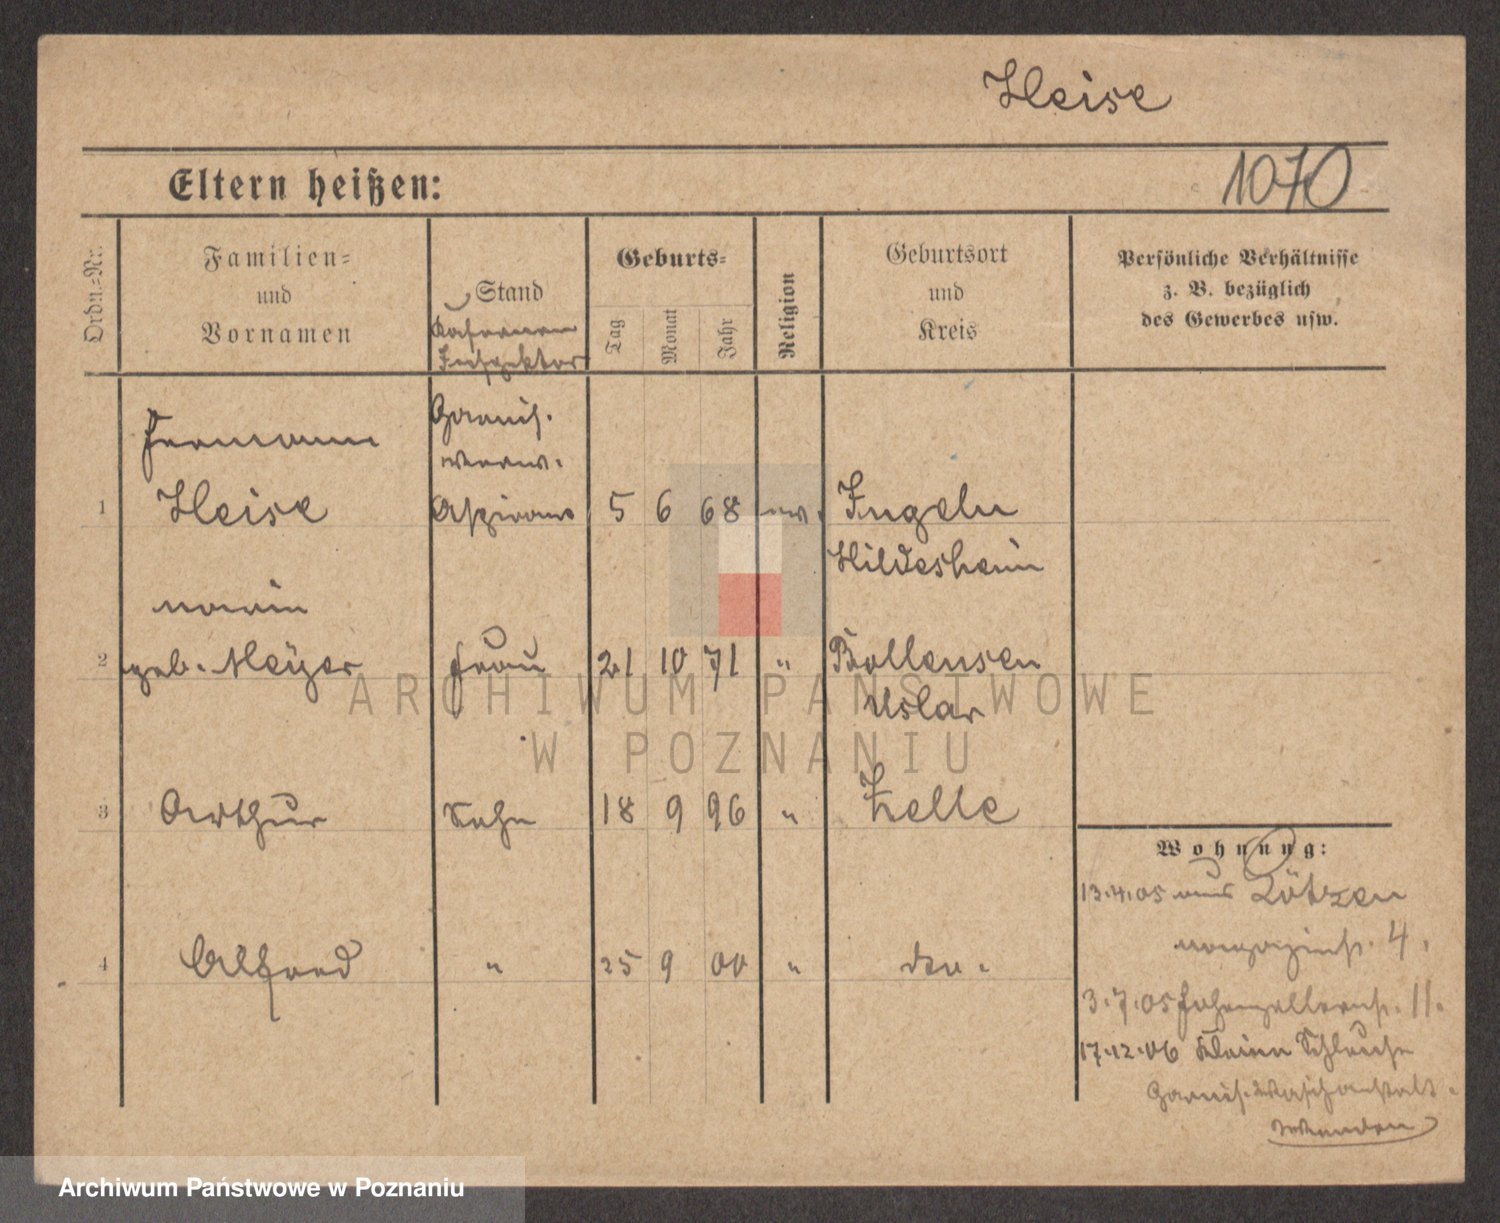 Heise
1070
Eltern heißen:
Ordn.-Nr.
Familien-
und
Vornamen
Stand
Kasernen
Inspektor
Geburts-
Tag
Monat
Jahr
Religion
Geburtsort
und
Kreis
Persönliche Verhältnisse
z. B. bezüglich
des Gewerbes usw.
Hermann
Garnis.
verw.
1 Heise Aspirant 5 6 68 ev. Ingeln
Hildesheim
Maria
2 geb. Meÿer Frau 21 10 71 " Bollensen
Uslar
3 Arthur Sohn 18 9 96 " Zelle
Wohnung:
13.4.05 aus Lötzen
Magazinstr. 4.
4 Alfred " 25 9 00 " den.
3.7.05 Hohenzollernstr. 11.
17.12.06 Kleine Schleuse
Garnis. Waschanstalt.
ARCHIWUM PAŃSTWOWE
W POZNANIU
Archiwum Państwowe w Poznaniu